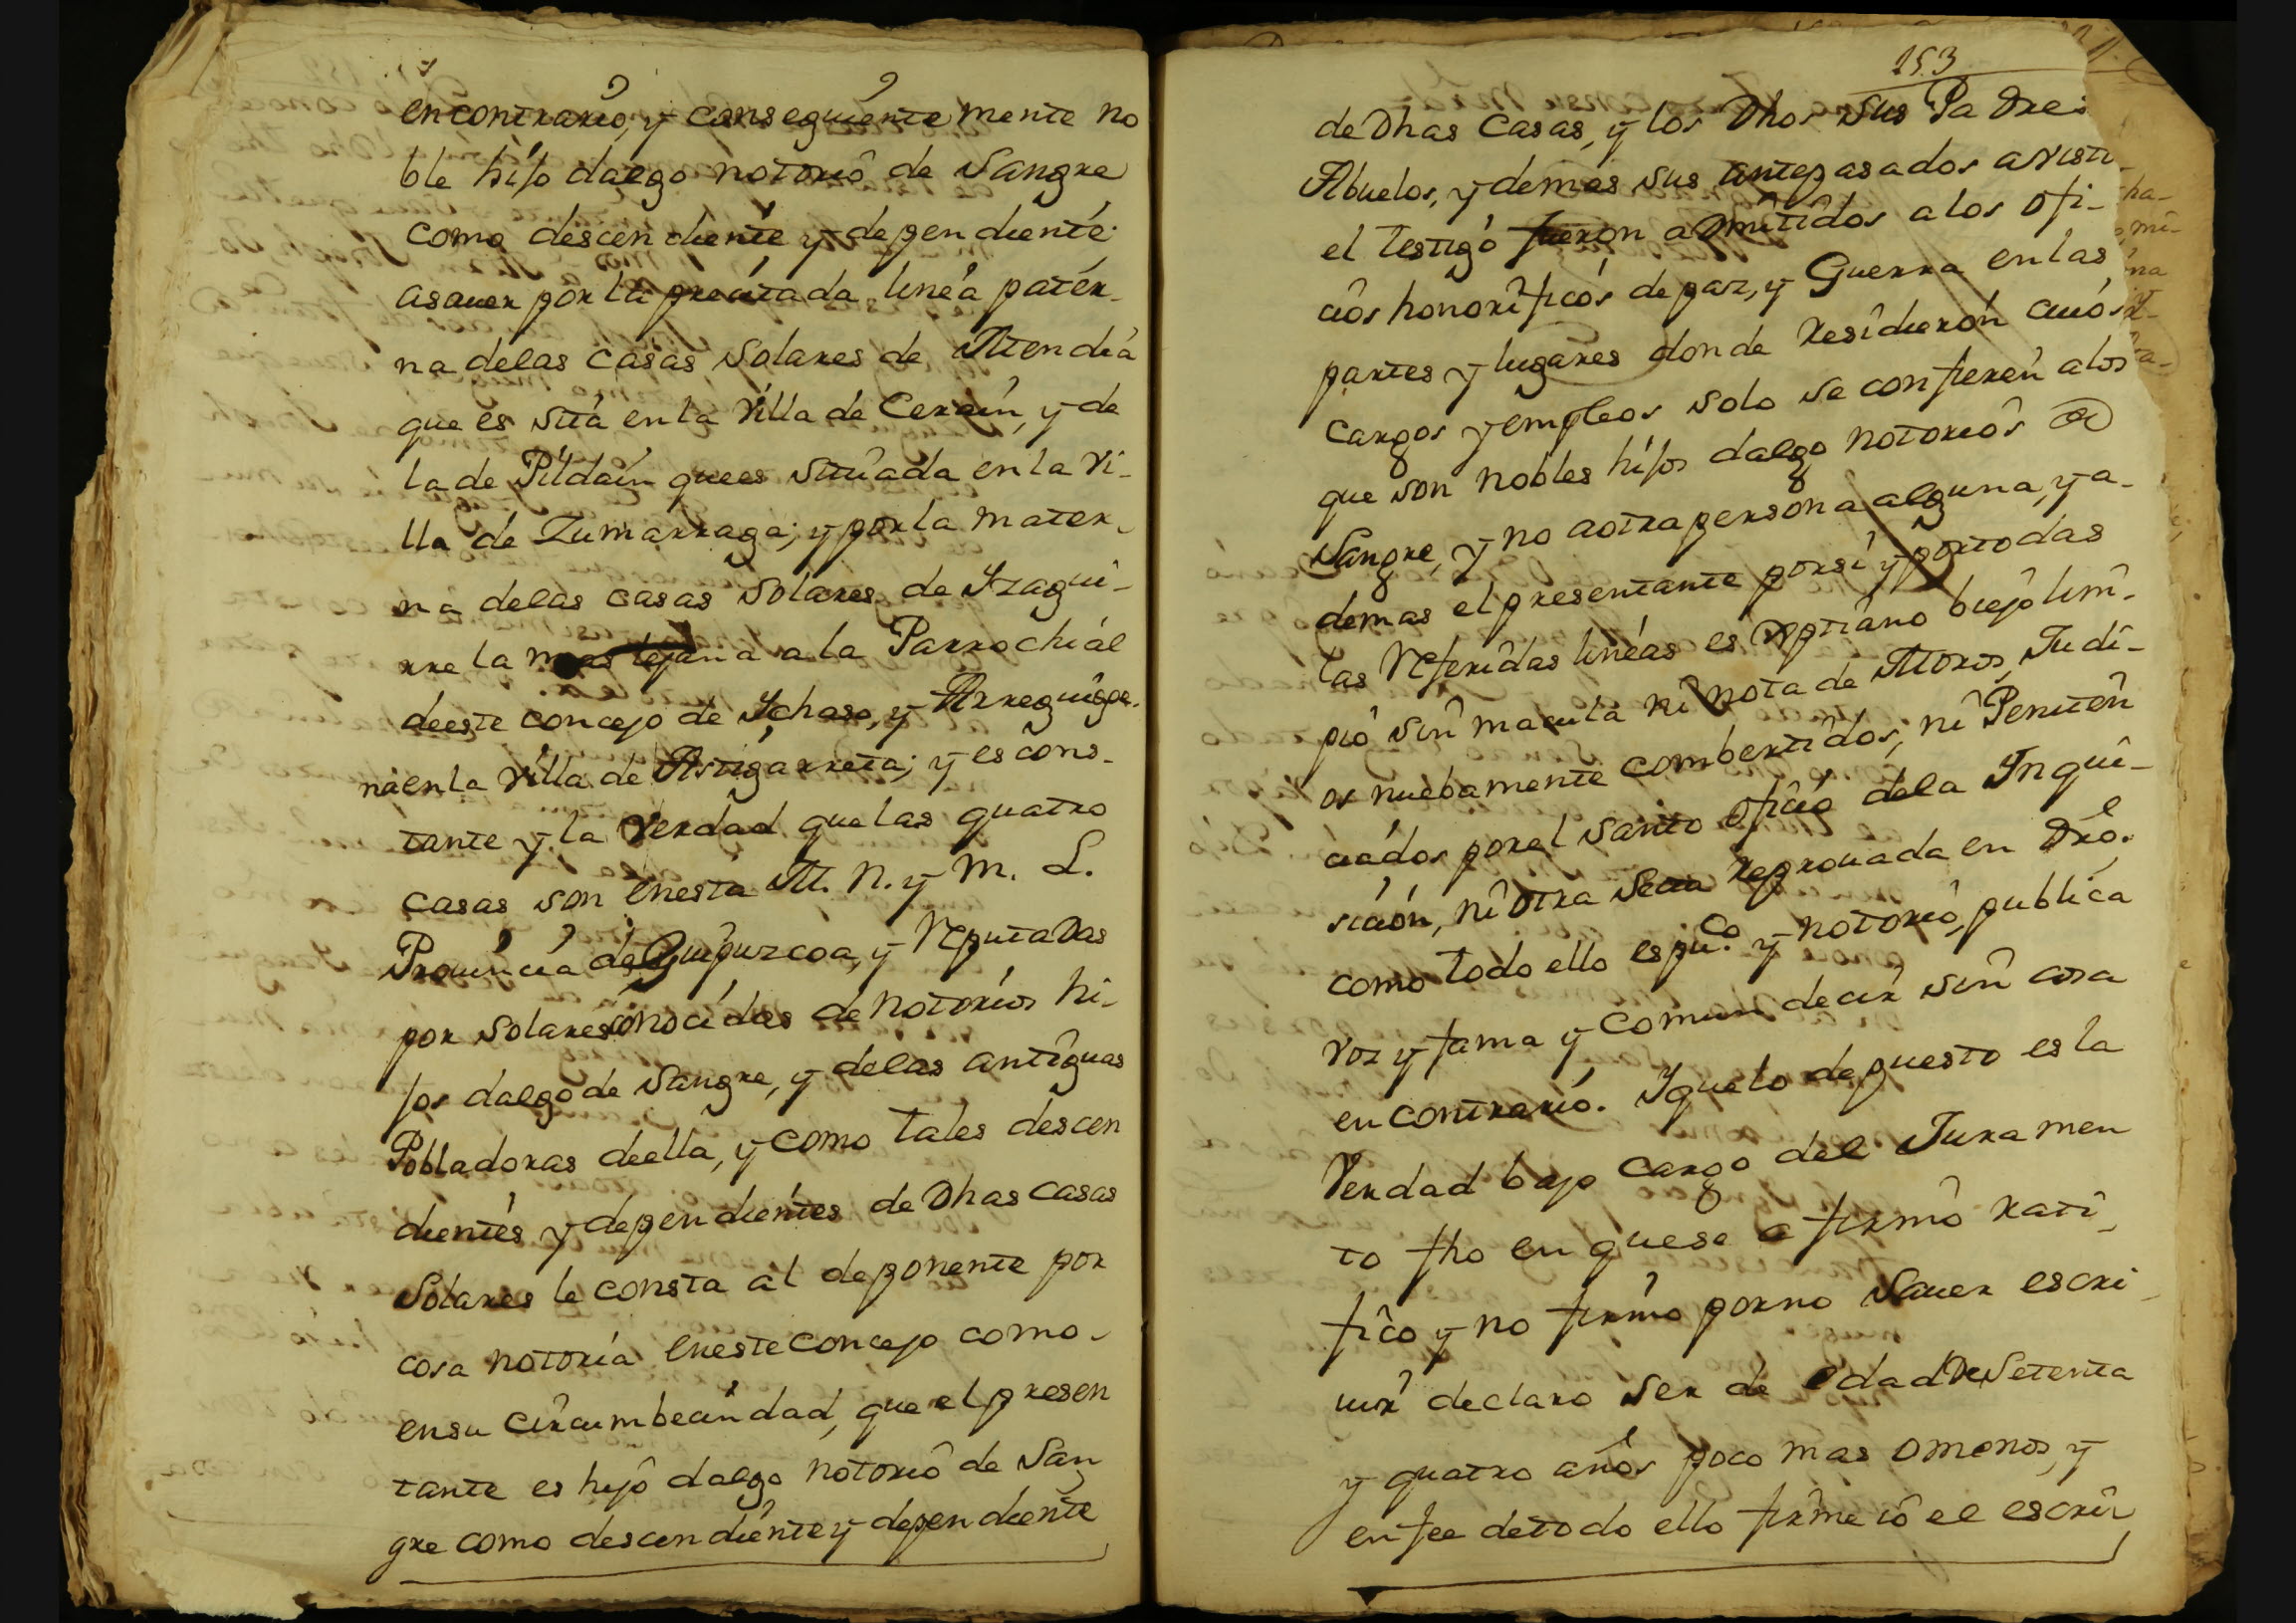 en contrario, y conseguientemente no
ble hijo dalgo notorio de Sangre
como descendiente y dependiente
asauer por la precitada linea pater-
na delas casas Solares de Mendia
que es sita en la Villa de Cerain, y de
la de Pildain que es situada en la Vi-
lla de Zumarraga; y por la mater-
na delas casas Solares de Yzagui-
rre la mas lejana a la Parrochial
deeste concejo de Ychaso, y Arreguigoe-
na en la Villa de Astigarreta; y es cons-
tante y la Verdad que las quatro
casas son enesta M. N. y M. L.
Prouincia de Guipuzcoa, y Reputadas
por solares conocidas de notorios hi-
jos dalgo de Sangre, y delas antiguas
Pobladoras deella, y como tales descen
dientes y dependientes de Dhas casas
Solares le consta al deponente por
cosa notoria eneste concejo como
ensu circumbecindad, que el presen
tante es hijo dalgo notorio de San
gre como descendiente y dependiente
153
de Dhas Casas, y los Dhos sus Padres
Abuelos, y demas sus antepasados avista
el testigo fueron admitidos alos ofi-
cios honorificos de paz, y Guerra enlas
partes y lugares donde Residieron cuios
cargos y empleos solo se confieren alos
que son nobles hijos dalgo notorios de
Sangre, y no aotra persona alguna, y a-
demas el presentante porsi y portodas
las Referidas lineas es Xptiano biejo lim-
pio sin macula ni nota de Moros, Judi-
os nuebamente combertidos, ni Peniten
ciados porel Santo oficio dela Inqui-
sicion, ni otra Secta Reprouada en Dro.
como todo ello es puco. y notorio, publica
voz y fama y comun decir sin cosa
en contrario. Y que lo depuesto es la
Verdad bajo cargo del Juramen
to fho en que se afirmo rati-
fico y no firmo porno Sauer escri
uir declaro Ser de edad de Setenta
y quatro años poco mas omenos, y
enfee detodo ello firme io el escriu
ha-
mi-
na